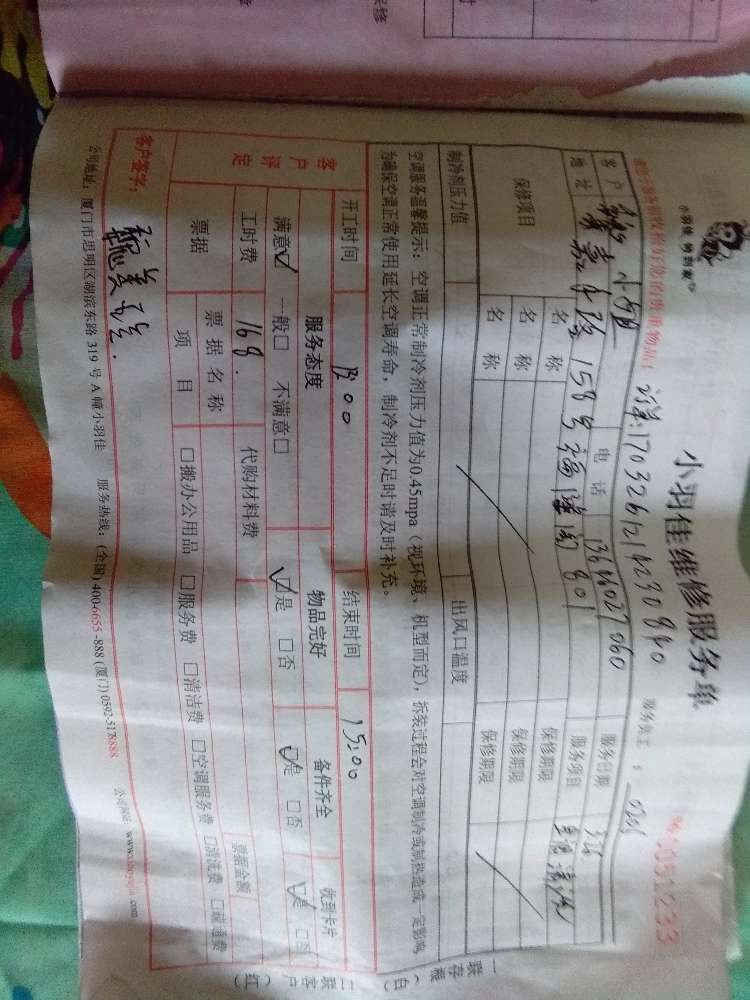 小羽佳维修服务单
小羽佳 特到家
请您在服务前收拾好您的贵重物品!
订单:1703261214230840
服务员工:
No 0051233
客户 小姐 电话 服务日期
地址 嘉禾路158号 801 服务项目 清洗
保修项目 名称 保修期限
名称 保修期限
名称 保修期限
制冷剂压力值 出风口温度
空调服务温馨提示:空调正常制冷剂压力值为0.45mpa(视环境、机型而定),拆装过程会对空调制冷或制热造成一定影响,
为确保空调正常使用延长空调寿命,制冷剂不足时请及时补充。
开工时间 结束时间 15:00
客户评定 服务态度 物品完好 备件齐全 收到卡片
满意☑ 一般□ 不满意□ ☑是 □否 ☑是 □否 ☑是 □否
工时费 168. 代购材料费
票据 票据名称 票据金额
项目 □搬办公用品 □服务费 □清洁费 □空调服务费 □清洗费 □疏通费
客户签字:
公司地址:厦门市思明区湖滨东路319号A幢小羽佳 服务热线:(全国)400-6655-888(厦门)0592-5178888 公司网址:
一联存根(白) 二联客户(红)